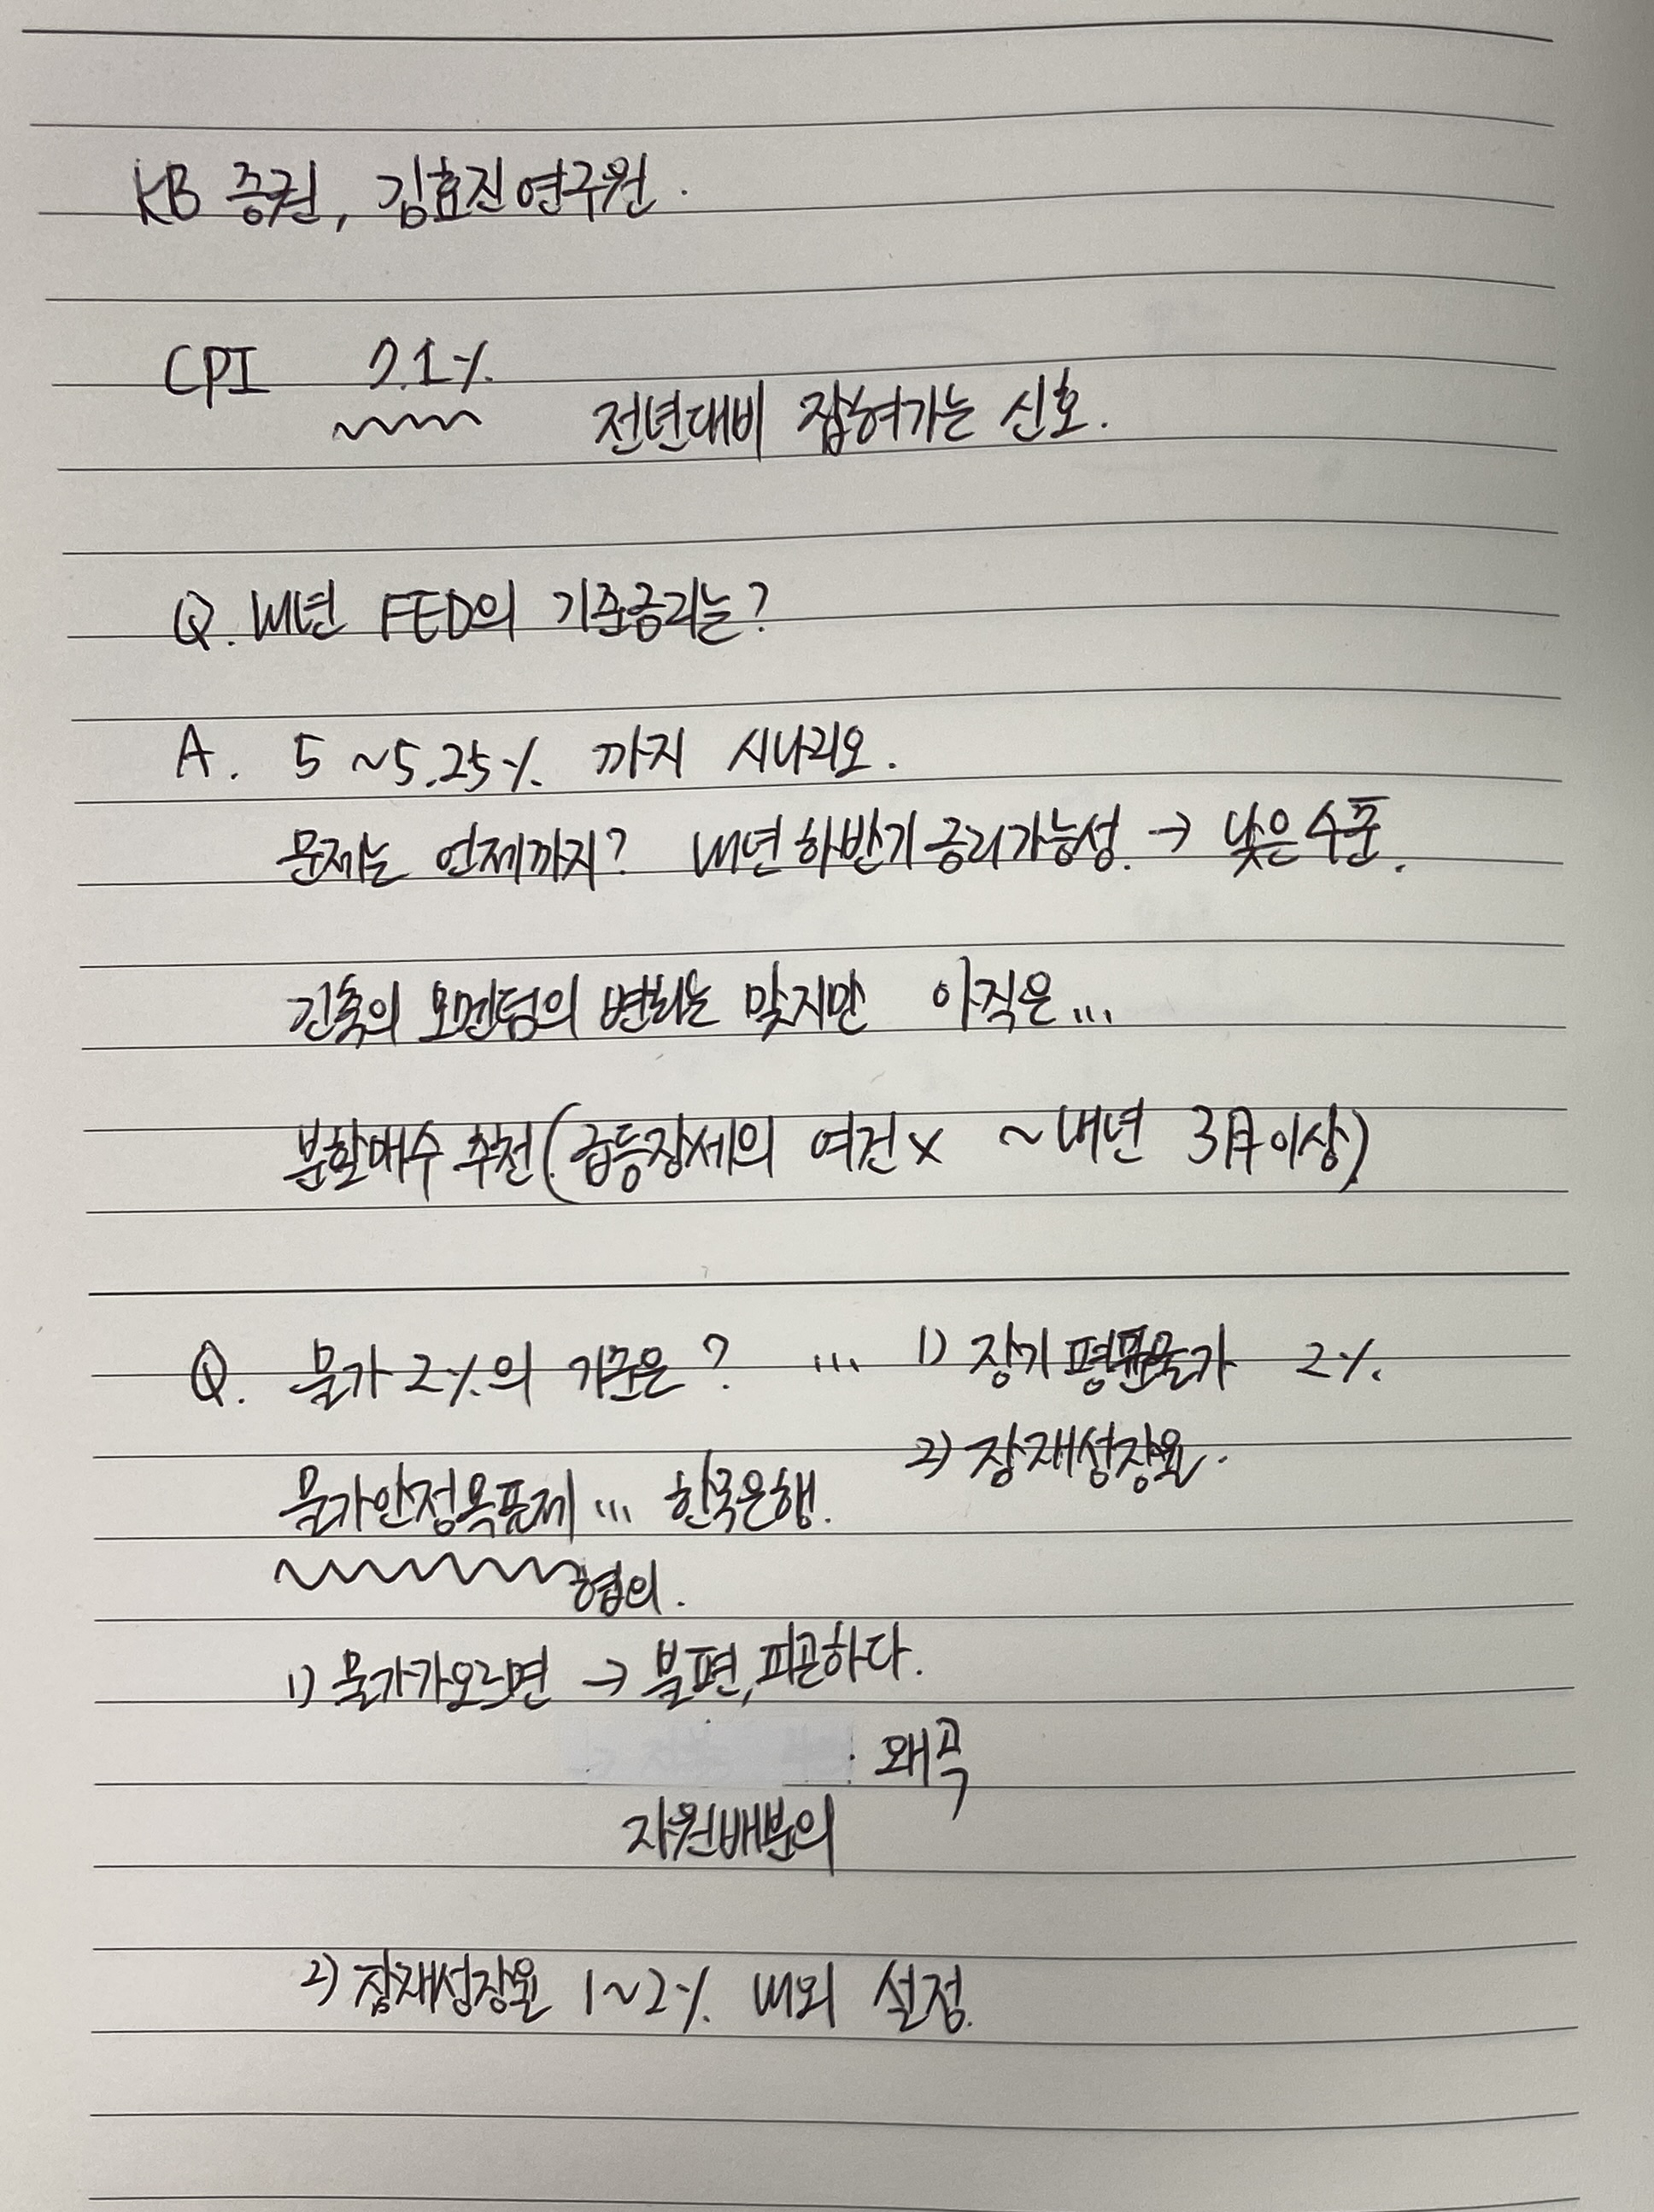 KB 증권, 김효진연구원.
CPI 7.1%
전년대비 잡혀가는 신호.
Q. 내년 FED의 기준금리는?
A. 5 ~ 5.25% 까지 시나리오.
문제는 언제까지? 내년하반기금리가능성. → 낮은수준.
긴축의 모멘텀의 변화는 맞지만 아직은...
분할매수 추천(급등장세의 여건 x ~ 내년 3月이상)
Q. 물가 2%의 기준은? ... 1) 장기 평균물가 2%.
2) 잠재성장율.
물가안정목표제 ... 한국은행.
협의.
1) 물가가오르면 → 불편, 피곤하다.
· 왜곡
자원배분의
2) 잠재성장율 1~2% 내외 설정.